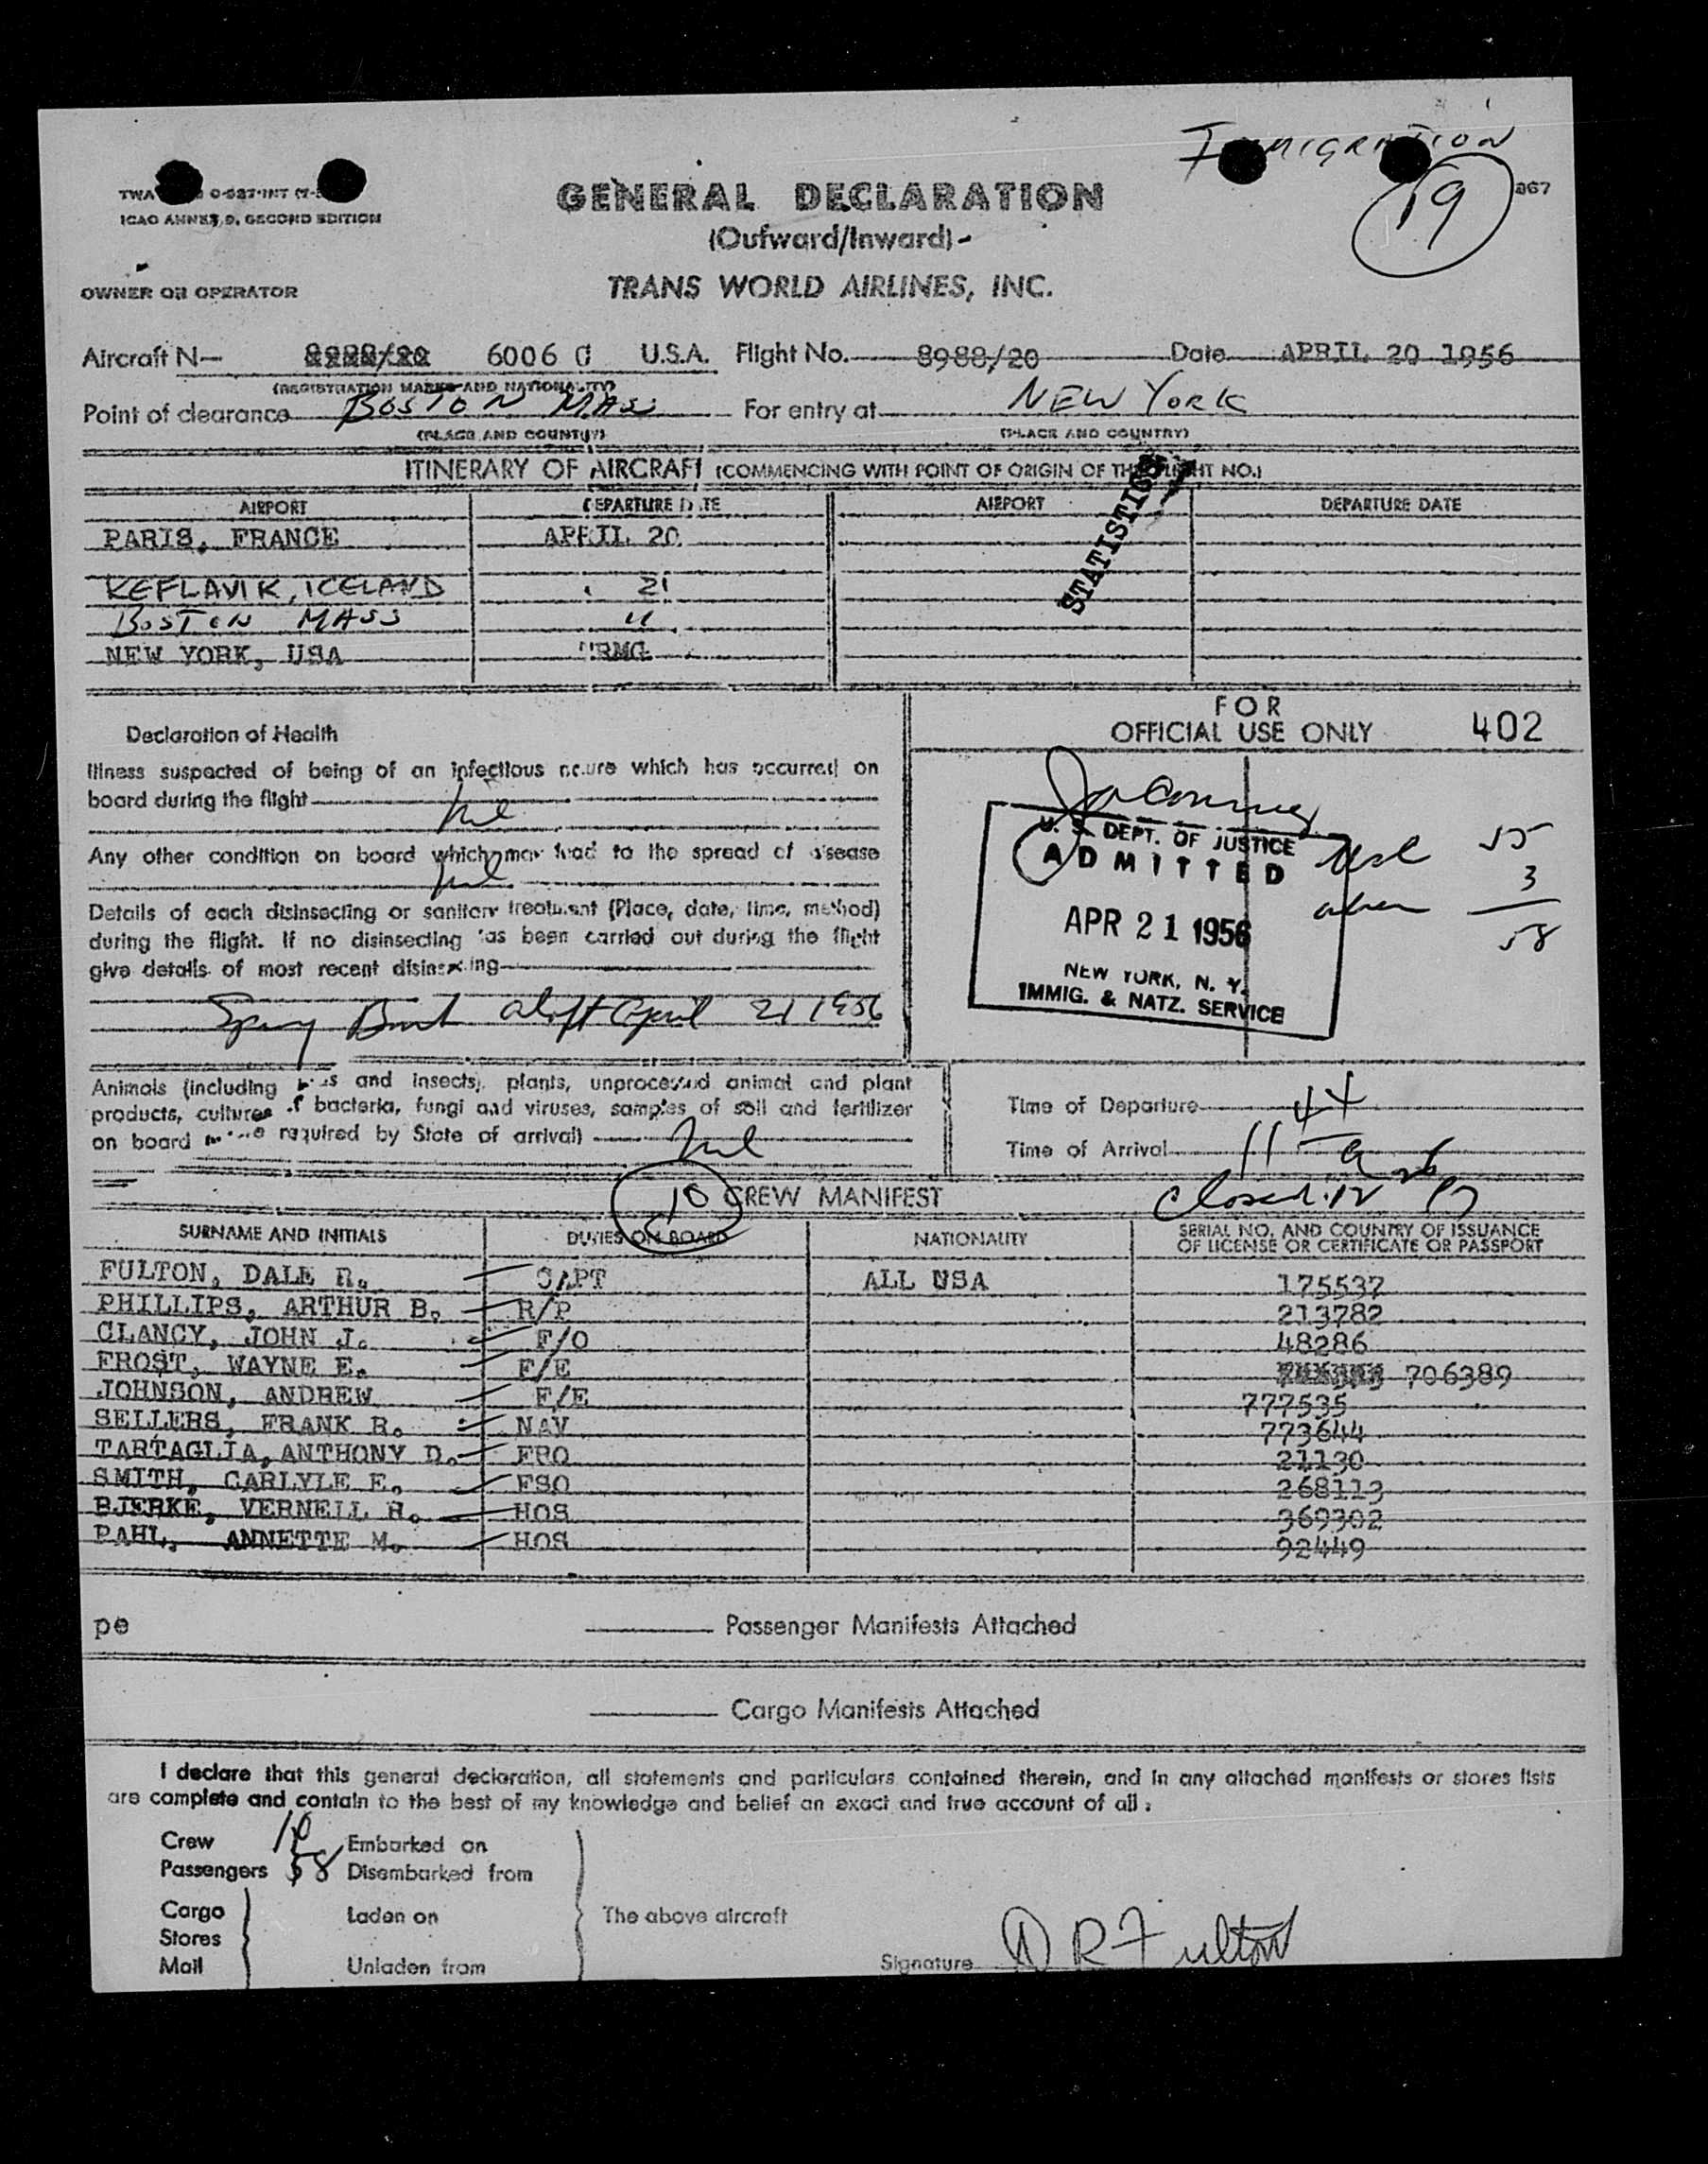 IMMIGRATION
TWA 0-527-INT
ICAO ANNEX 9, SECOND EDITION
GENERAL DECLARATION
19
867
(Outward/Inward)
OWNER OR OPERATOR
TRANS WORLD AIRLINES, INC.
Aircraft N— 6006 C U.S.A. Flight No. 8988/20 Date APRIL 20 1956
(REGISTRATION MARKS AND NATIONALITY)
Point of clearance BOSTON MASS For entry at NEW YORK
(PLACE AND COUNTRY) (PLACE AND COUNTRY)
ITINERARY OF AIRCRAFT (COMMENCING WITH POINT OF ORIGIN OF THIS FLIGHT NO.)
STATISTICS
AIRPORT DEPARTURE DATE AIRPORT DEPARTURE DATE
PARIS, FRANCE APRIL 20
KEFLAVIK, ICELAND 21
BOSTON MASS "
NEW YORK, USA TRMG
Declaration of Health
Illness suspected of being of an infectious nature which has occurred on
board during the flight nil
Any other condition on board which may lead to the spread of disease
nil
Details of each disinsecting or sanitary treatment (Place, date, time, method)
during the flight. If no disinsecting has been carried out during the flight
give details of most recent disinsecting
aloft April 21 1956
FOR
OFFICIAL USE ONLY 402
U. S. DEPT. OF JUSTICE
ADMITTED
APR 21 1956
NEW YORK, N. Y.
IMMIG. & NATZ. SERVICE
55
alien 3
58
Animals (including birds and insects), plants, unprocessed animal and plant
products, cultures of bacteria, fungi and viruses, samples of soil and fertilizer
on board required by State of arrival) nil
Time of Departure
Time of Arrival 11 44
Closed 12
10 CREW MANIFEST
SURNAME AND INITIALS DUTIES ON BOARD NATIONALITY SERIAL NO. AND COUNTRY OF ISSUANCE
OF LICENSE OR CERTIFICATE OR PASSPORT
FULTON, DALE R. CAPT ALL USA 175537
PHILLIPS, ARTHUR B. R/P 213782
CLANCY, JOHN J. F/O 48286
FROST, WAYNE E. F/E 706389
JOHNSON, ANDREW F/E 777535
SELLERS, FRANK R. NAV 773644
TARTAGLIA, ANTHONY D. FRO 21130
SMITH, CARLYLE E. FSO 268113
BJERKE, VERNELL H. HOS 369302
PAHL, ANNETTE M. HOS 92449
pe Passenger Manifests Attached
Cargo Manifests Attached
I declare that this general declaration, all statements and particulars contained therein, and in any attached manifests or stores lists
are complete and contain to the best of my knowledge and belief an exact and true account of all:
Crew 10 Embarked on
Passengers 58 Disembarked from
Cargo Laden on The above aircraft
Stores
Mail Unladen from Signature D R Fulton